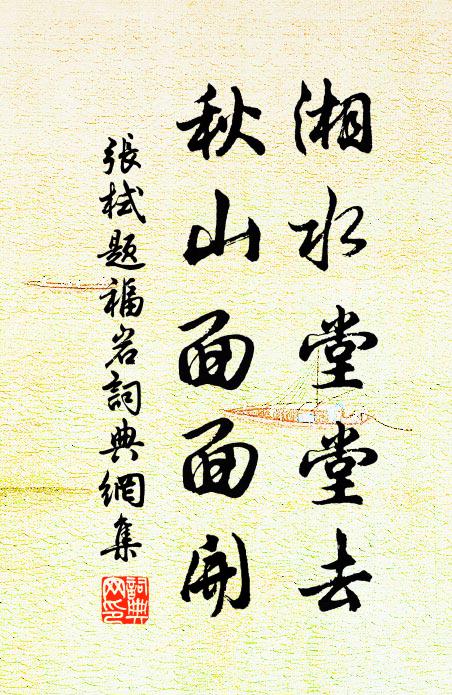 湘水堂堂去
秋山面面開
張栻題福岩詞典網集
詞典网印